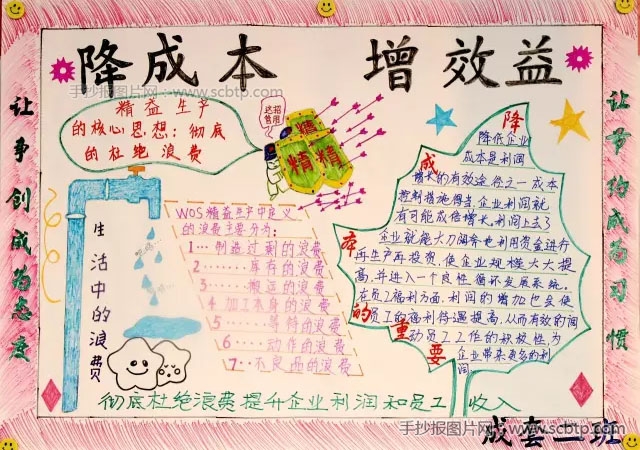 降成本 增效益
手抄报图片网 www.scbtp.com
让争创成为态度
让节约成为习惯
精益生产
的核心思想：彻底
的杜绝浪费
这招
管用
精
精
精
降
成
本
的
重
要
降低企业
成本是利润
增长的有效途径之一成本
控制措施得当企业利润就
有可能成倍增长,利润上去了
企业就能大刀阔斧地利用资金进行
再生产再投资,使企业规模大大提
高,并进入一个良性循环发展系统。
在员工福利方面,利润的增加也会使
员工的福利待遇提高,从而有效的调
动员工工作的积极性,为
企业带来更多的利
润
生活中的浪费
WOS精益生产中定义
的浪费主要分为:
1…制造过剩的浪费
2……库存的浪费
3……搬运的浪费
4加工本身的浪费
5……等待的浪费
6……动作的浪费
7…不良品的浪费
彻底杜绝浪费提升企业利润和员工收入
手抄报图片网 www.scbtp.com
成套二班